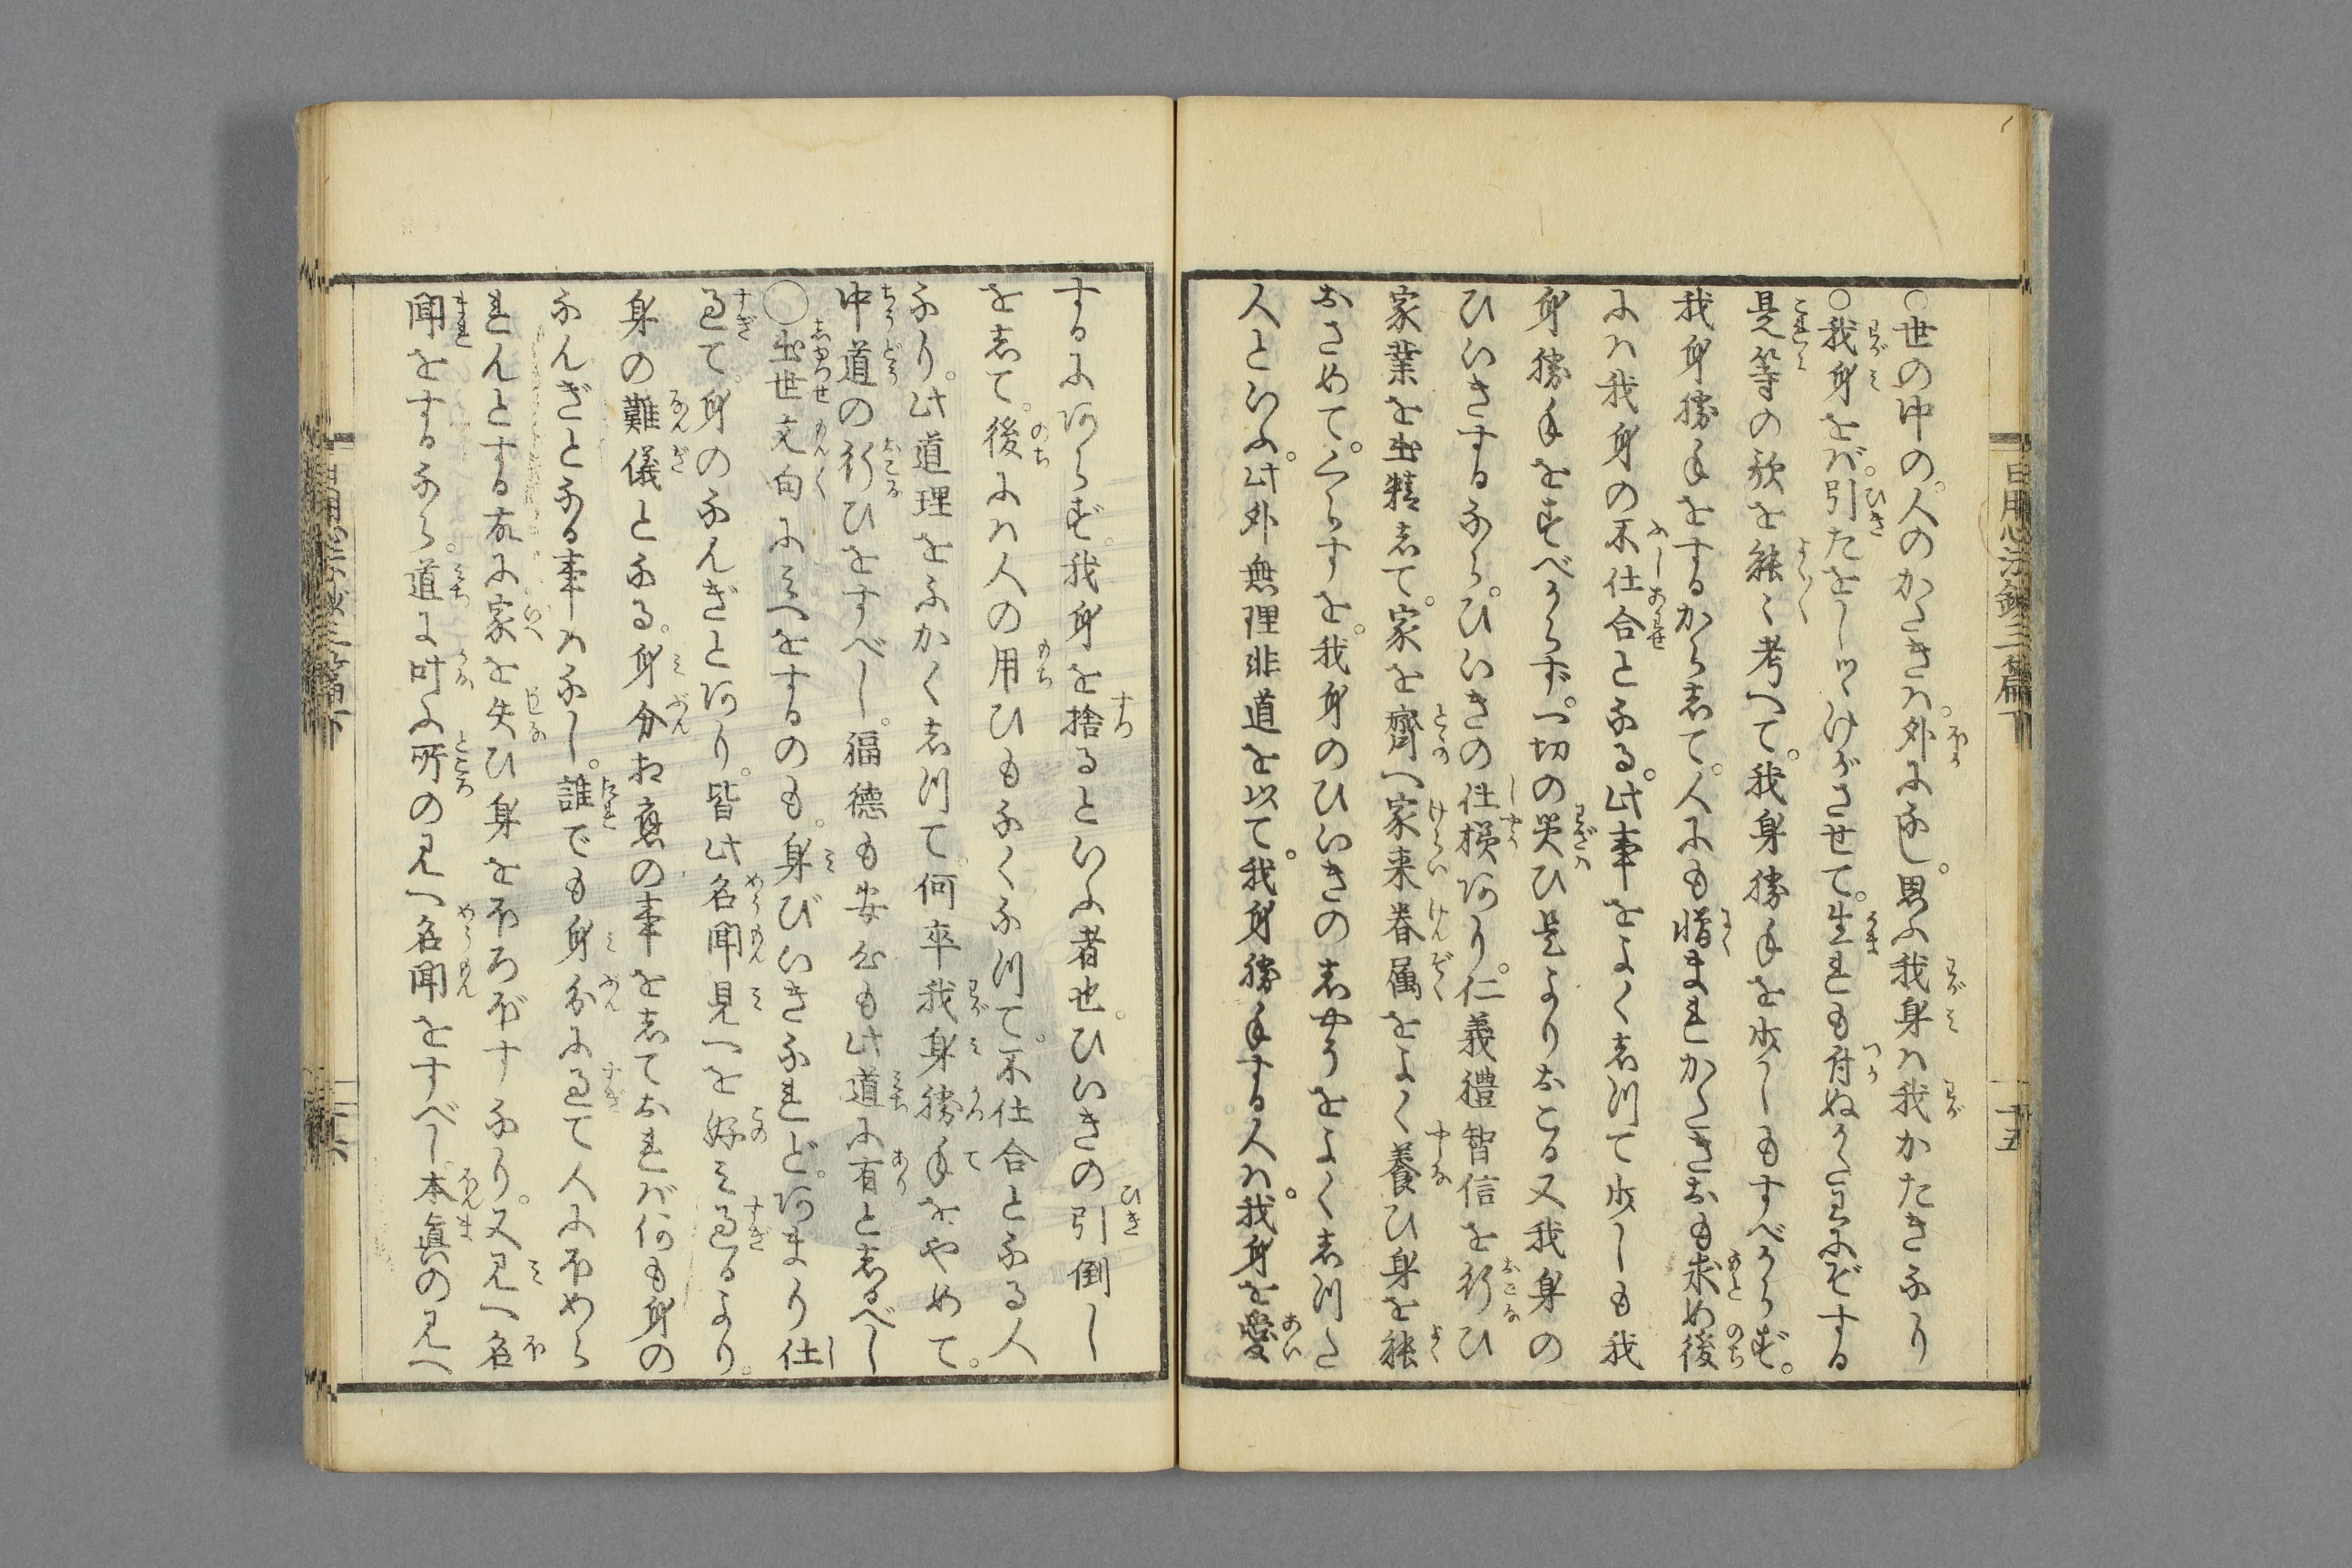 日用心法鈔三篇下 十五
○世の中の。人のかたきハ。外になし。思ふ我身ハ我かたきなり
○我身をバ。引たをしツヽけがさせて。生れも付ぬかたわにぞする
是等の歌を能々考へて。我身勝手を少しもすべからず。
我身勝手をするからして。人にも憎まれかたきおも求め後
にハ我身の不仕合となる。此事をよくしつて少しも我
身勝手をすべからず。一切の災ひ是よりおこる又我身の
ひいきするなら。ひいきの仕様あり。仁義禮智信を行ひ
家業を出精して。家を齊へ家来眷属をよく養ひ身を能
おさめて。くらすを。我身のひいきのしやうをよくしつた
人といふ。此外無理非道を以て。我身勝手する人ハ。我身を愛
するにあらず。我身を捨るといふ者也。ひいきの引倒し
をして。後にハ人の用ひもなくなつて。不仕合となる人
なり。此道理をふかくしつて。何卒我身勝手をやめて。
中道の行ひをすべし。福徳も安心も此道に有としるべし
○出世文句にみへをするのも。身びいきなれど。あまり仕
過て。身のなんぎとあり。皆此名聞見へを好み過るより。
身の難儀となる。身分相應の事をしておれバ何も身の
なんぎとなる事ハなし。誰でも身分に過て人にほめら
れんとする故に家を失ひ身をほろぼすなり。又見へ名
聞をするなら。道に叶ふ所の見へ名聞をすべし。本真の見へ